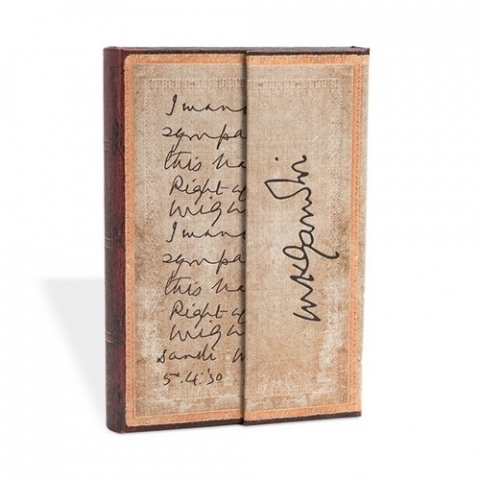 I wan
sympa
this ba
Right ag
Migh
I wan
sympa
this ba
Right ag
Migh
Dandi M
5.4.'30
MKGandhi